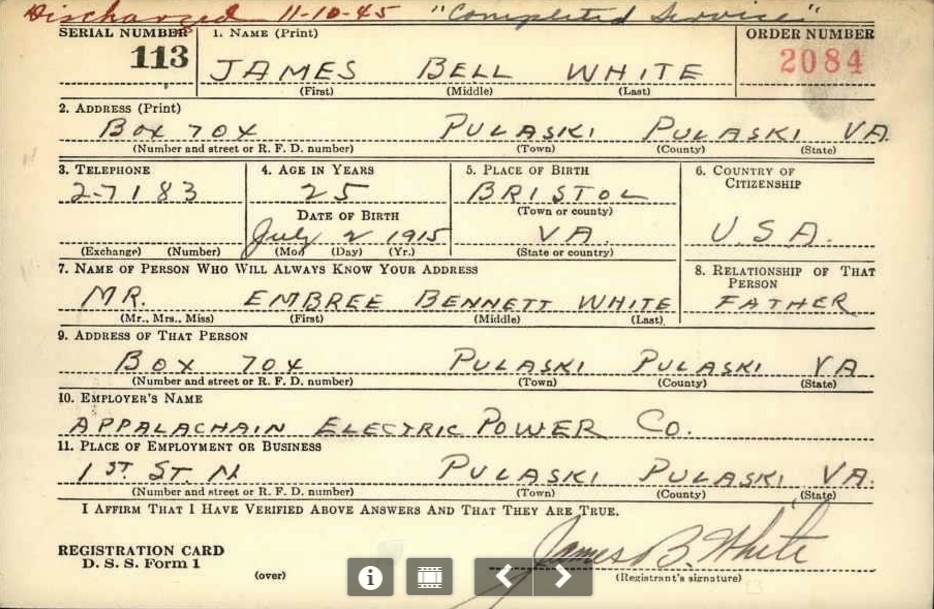 Discharged 11-10-45 "Completed Service"
SERIAL NUMBER 1. NAME (Print) ORDER NUMBER
113 JAMES BELL WHITE 2084
(First) (Middle) (Last)
2. ADDRESS (Print)
BOX 704 PULASKI PULASKI VA
(Number and street or R. F. D. number) (Town) (County) (State)
3. TELEPHONE 4. AGE IN YEARS 5. PLACE OF BIRTH 6. COUNTRY OF CITIZENSHIP
2-7183 25 BRISTOL
DATE OF BIRTH (Town or county)
July 2 1915 VA. U.S.A.
(Exchange) (Number) (Mo.) (Day) (Yr.) (State or country)
7. NAME OF PERSON WHO WILL ALWAYS KNOW YOUR ADDRESS 8. RELATIONSHIP OF THAT PERSON
MR. EMBREE BENNETT WHITE FATHER
(Mr., Mrs., Miss) (First) (Middle) (Last)
9. ADDRESS OF THAT PERSON
BOX 704 PULASKI PULASKI VA
(Number and street or R. F. D. number) (Town) (County) (State)
10. EMPLOYER'S NAME
APPALACHAIN ELECTRIC POWER CO.
11. PLACE OF EMPLOYMENT OR BUSINESS
1ST ST. N PULASKI PULASKI VA.
(Number and street or R. F. D. number) (Town) (County) (State)
I AFFIRM THAT I HAVE VERIFIED ABOVE ANSWERS AND THAT THEY ARE TRUE.
James B. White
REGISTRATION CARD
D. S. S. Form 1
(over) (Registrant's signature)